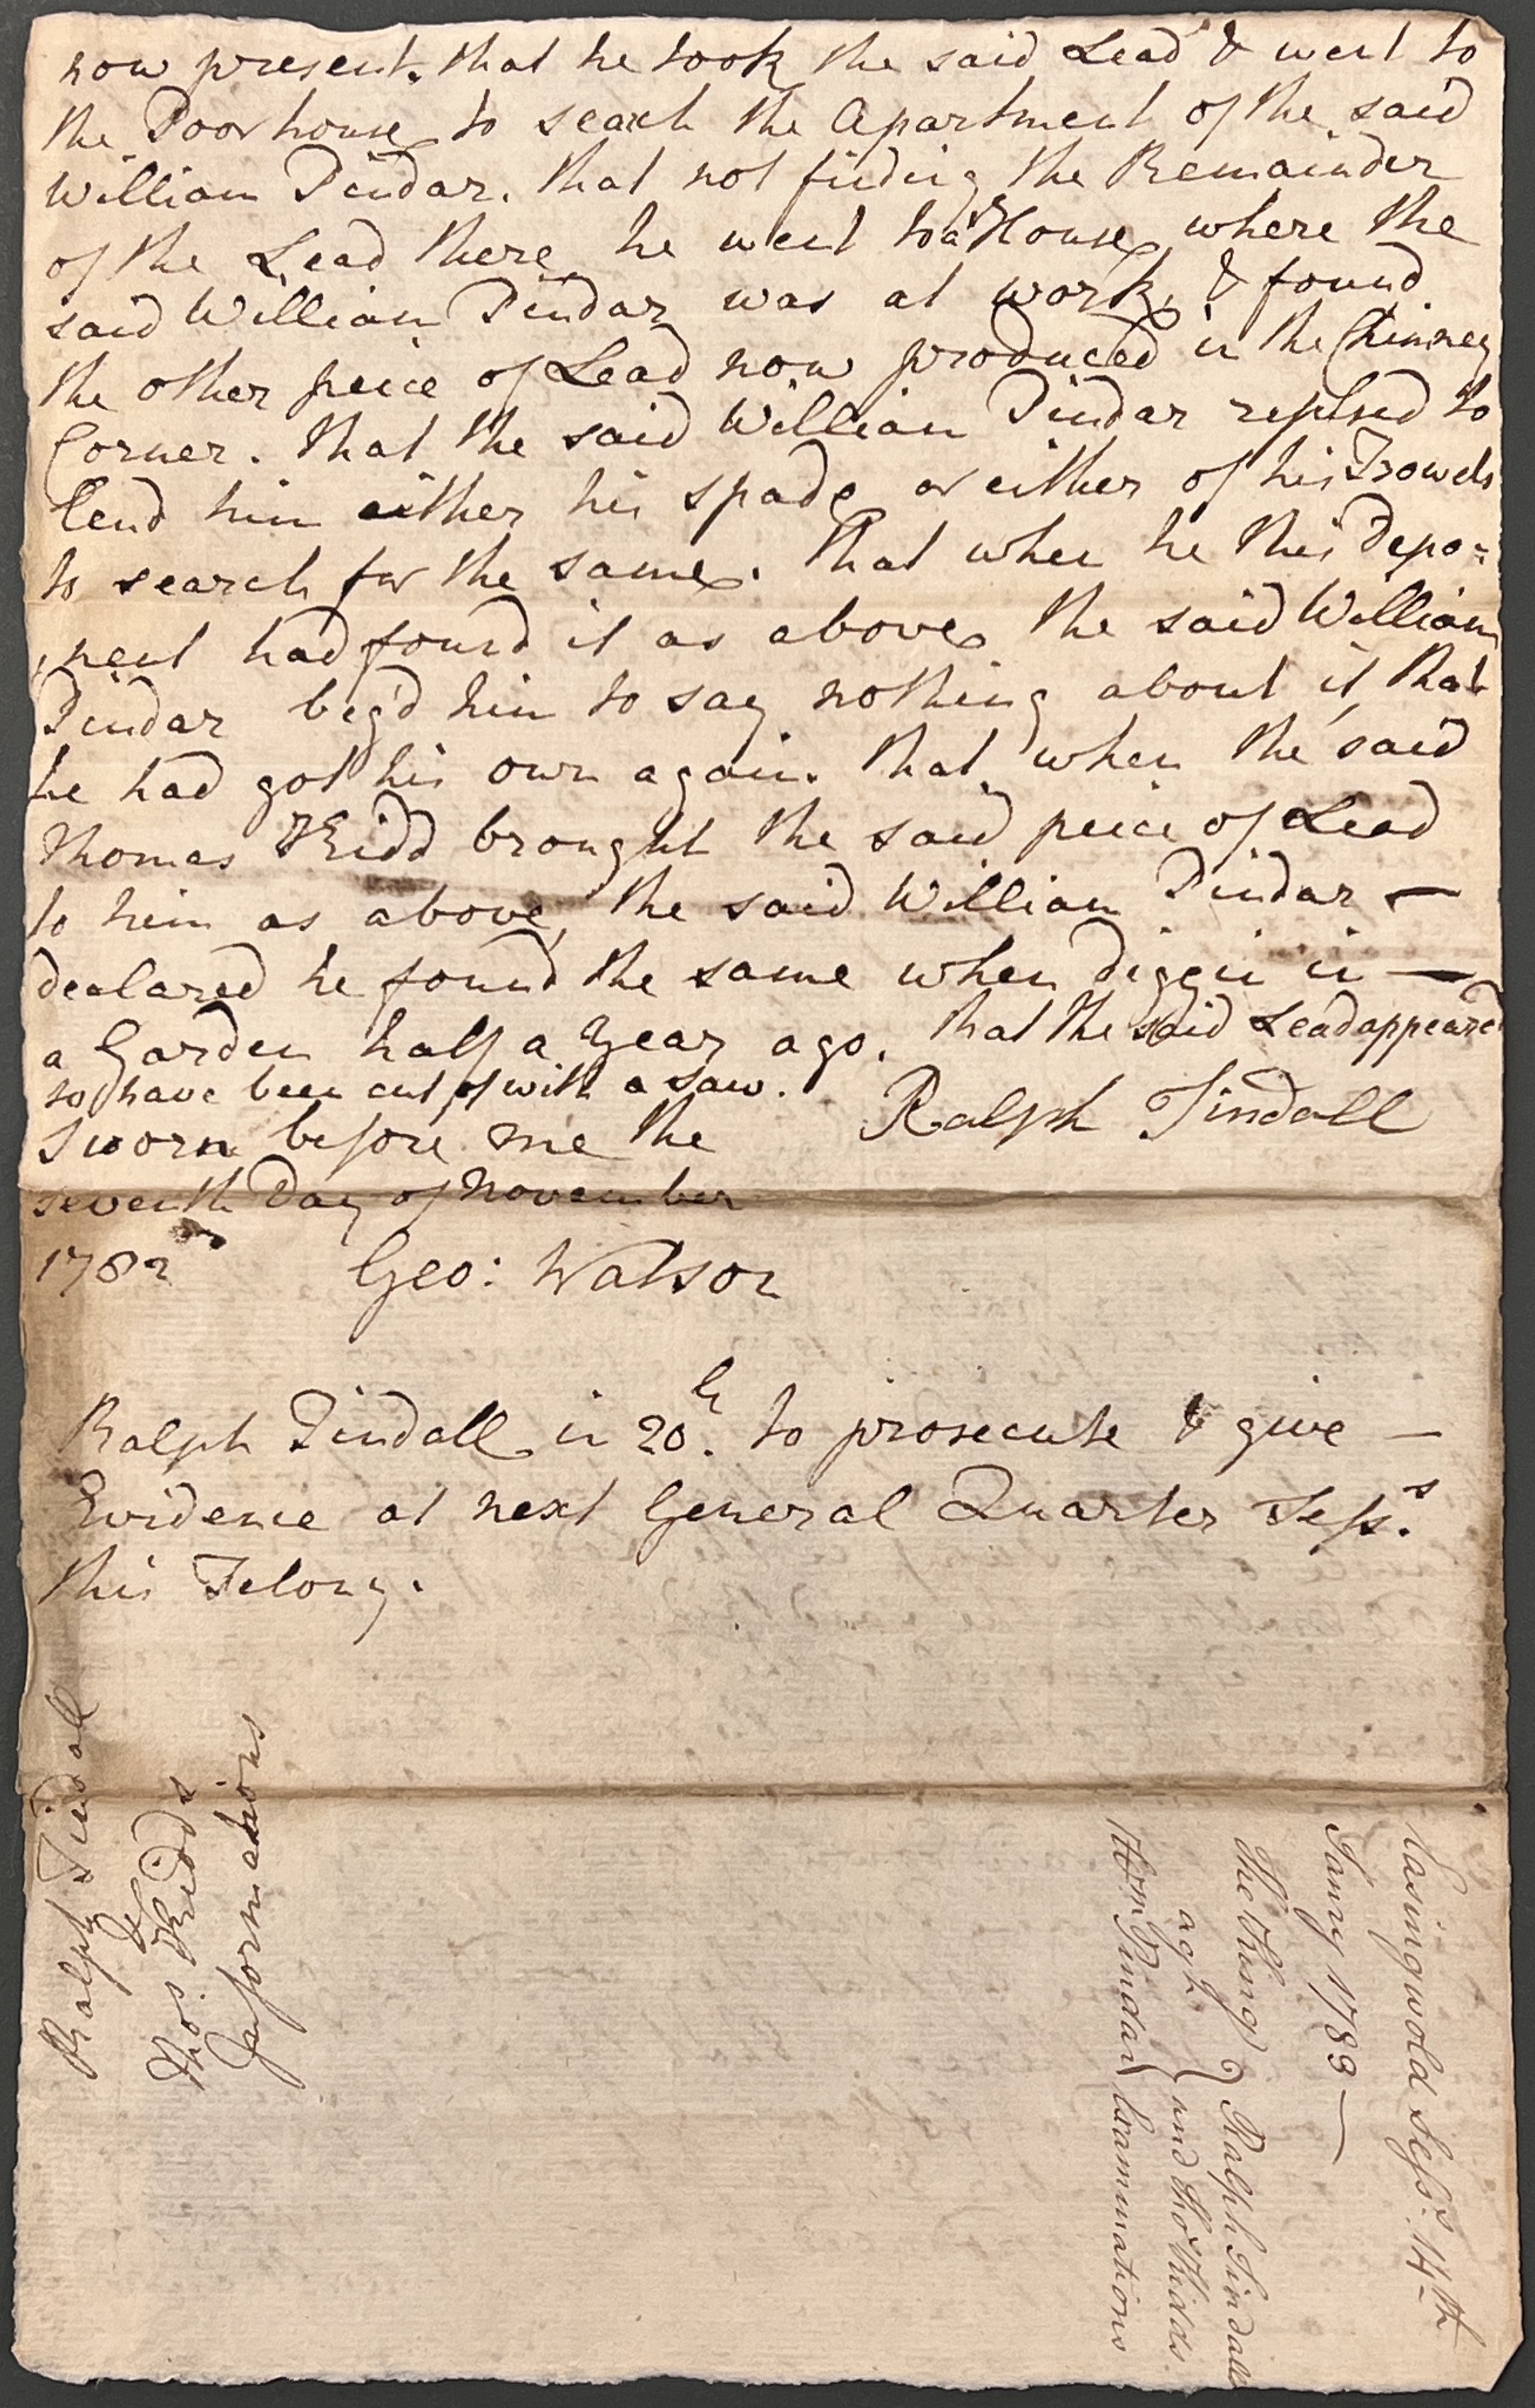 now present. that he took the said Lead & went to
the Poorhouse to seach the Apartment of the said
William Pindar. that not finding the Remainder
of the Lead there he went to a House where the
said William Pindar was at work, & found
the other peice of Lead now produced in the Chimney
Corner. that the said William Pindar refused to
lend him either his spade or either of his Trowels
to search for the same. that when he this Depo=
nent had found it as above the said William
Pindar beg'd him to say nothing about it, that
he had got his own again. that when the said
Thomas Kidd brought the said peice of Lead
to him as above, the said William Pindar —
declared he found the same when diggin in —
a Garden half a Year ago. that the said Lead appeared
to have been cut of with a saw.
Sworn before me the
Ralph Tindall
seventh Day of November
1782
Geo: Watson
Ralph Tindall in 20£. to prosecute & give —
Evidence at next General Quarter Sesss.
this Felony.
Ralph Tindall
&
Thos. Kidds
Informations
Easingwold Sesss. 14th
Janry 1783 —
The King
agt
Wm Pindar
Ralph Tindall
and Thos Kidds
Examinations